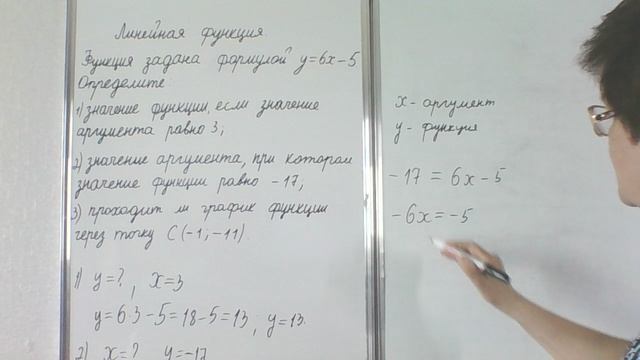 Линейная функция.
Функция задана формулой y=6x-5
Определите:
1) значение функции, если значение
аргумента равно 3;
2) значение аргумента, при котором
значение функции равно -17;
3) проходит ли график функции
через точку C(-1;-11).
1) y=?, x=3
y=6·3-5=18-5=13; y=13.
2) x=? y=-17
x-аргумент
y-функция
-17=6x-5
-6x=-5